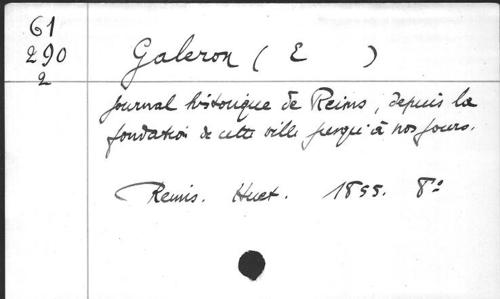 61
290
2
Galeron ( E )
Journal historique de Reims, depuis la
fondation de cette ville jusqu'à nos jours.
Reims. Huet. 1855. 8°